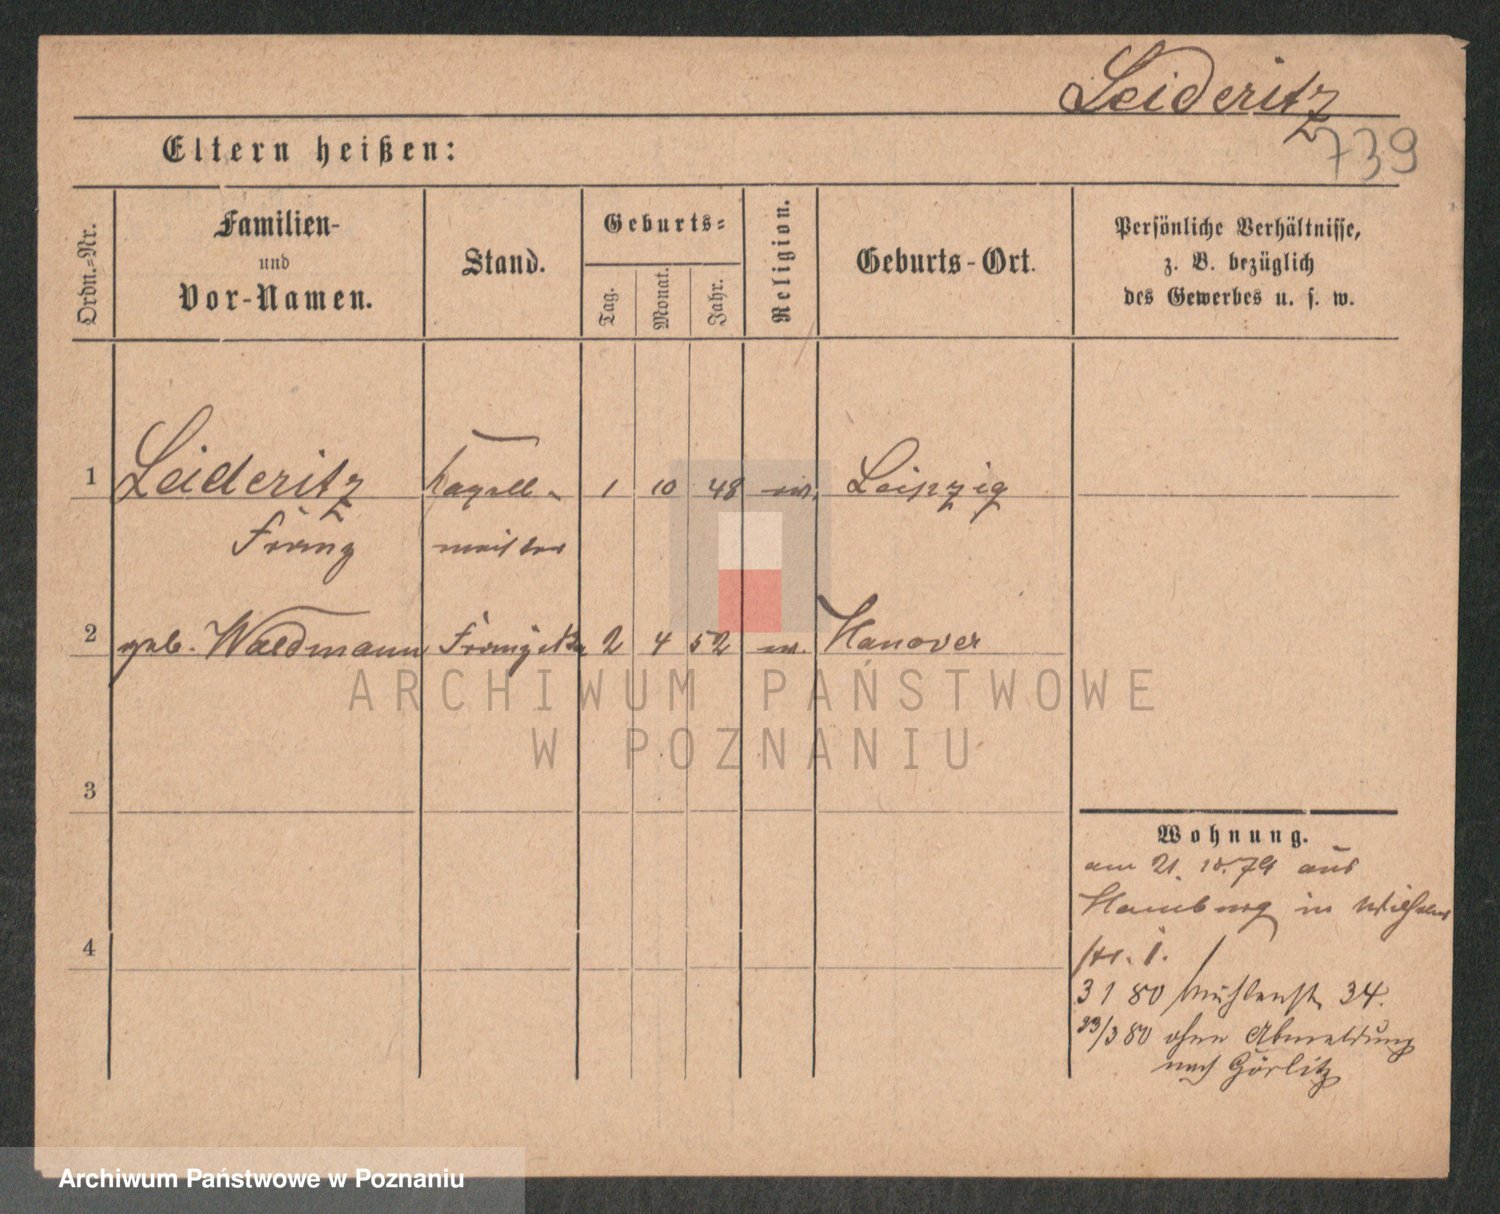 Leideritz
739
Eltern heißen:
Ordn.-Nr.
Familien-
und
Vor-Namen.
Stand.
Geburts-
Tag.
Monat.
Jahr.
Religion.
Geburts-Ort.
Persönliche Verhältnisse,
z. B. bezüglich
des Gewerbes u. s. w.
1 Leideritz Kapell- 1 10 48 ev. Leipzig
Franz meister
2 geb. Waldmann Franziska 2 4 52 ev. Hanover
3
4
Wohnung.
am 21. 10. 79 aus
Hamburg in
str. 1.
3 1 80 Mühlenst. 34.
23/3 80 ohne Abmeldung
nach Görlitz
ARCHIWUM PAŃSTWOWE
W POZNANIU
Archiwum Państwowe w Poznaniu